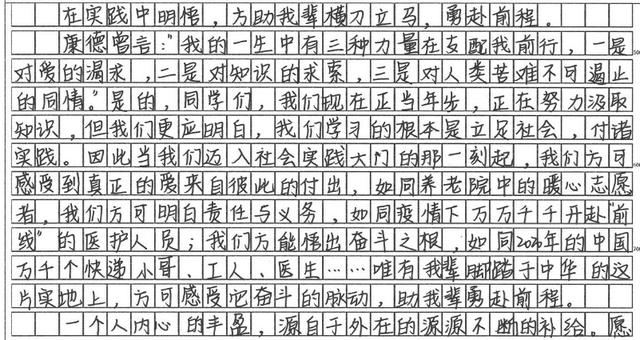 在实践中明悟，方助我辈横刀立马，勇赴前程。
康德曾言："我的一生中有三种力量在支配我前行，一是
对爱的渴求，二是对知识的求索，三是对人类苦难不可遏止
的同情。"是的，同学们，我们现在正当年步，正在努力汲取
知识，但我们更应明白，我们学习的根本是立足社会，付诸
实践。因此当我们迈入社会实践大门的那一刻起，我们方可
感受到真正的爱来自彼此的付出，如同养老院中的暖心志愿
者，我们方可明白责任与义务，如同疫情下万万千千开赴"前
线"的医护人员；我们方能悟出奋斗之根，如同2020年的中国
万千个快递小哥、工人、医生……唯有我辈脚踏于中华的这
片实地上，方可感受它奋斗的脉动，助我辈勇赴前程。
一个人内心的丰盈，源自于外在的源源不断的补给。愿